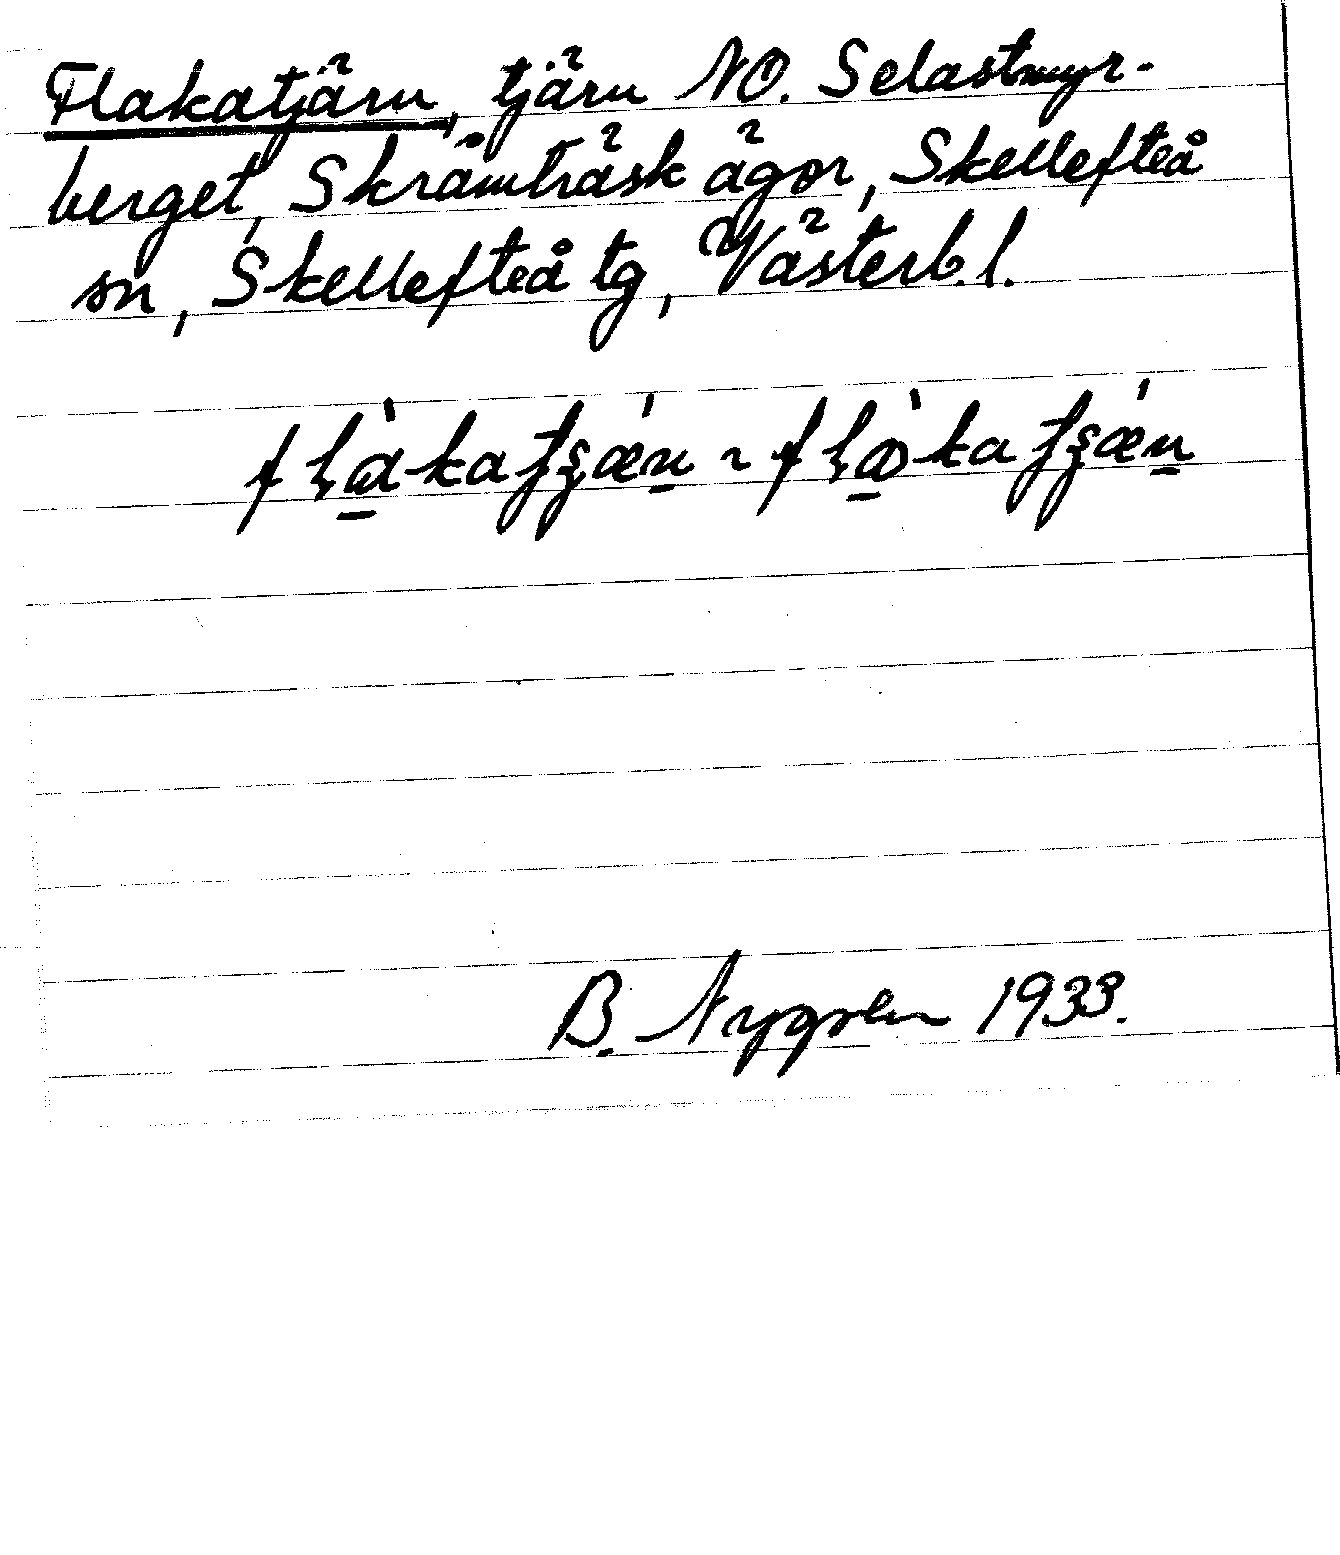 Flakatjärn, tjärn NO. Selastmyr-
berget, Skråmträsk ägor, Skellefteå
sn, Skellefteå tg, Västerb. l.
B. Nygren 1933.